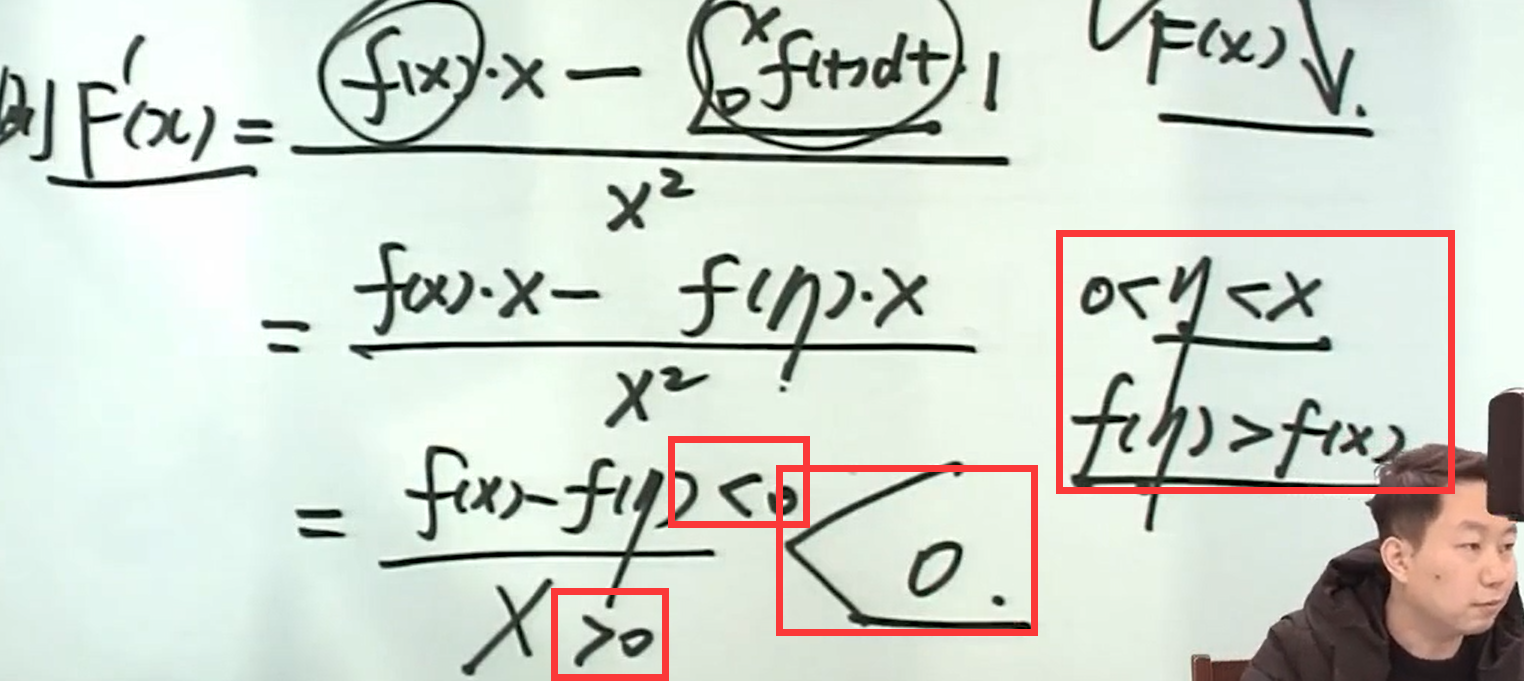 则 F'(x) = (f(x)·x − ∫₀ˣ f(t)dt·1) / x²
F(x) ↘.
= (f(x)·x − f(η)·x) / x²
0<η<x
f(η)>f(x)
= (f(x)−f(η) <0) / (x >0) < 0.